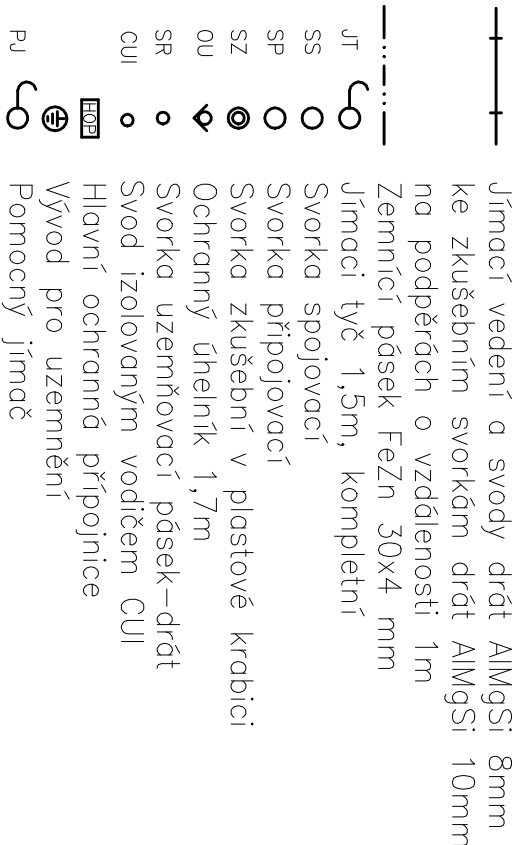 Jímací vedení a svody drát AlMgSi 8mm
ke zkušebním svorkám drát AlMgSi 10mm
na podpěrách o vzdálenosti 1m
Zemnící pásek FeZn 30x4 mm
JT Jímaci tyč 1,5m, kompletní
SS Svorka spojovací
SP Svorka připojovací
SZ Svorka zkušební v plastové krabici
OU Ochranný úhelník 1,7m
SR Svorka uzemňovací pásek–drát
CUI Svod izolovaným vodičem CUI
HOP Hlavní ochranná přípojnice
Vývod pro uzemnění
PJ Pomocný jímač